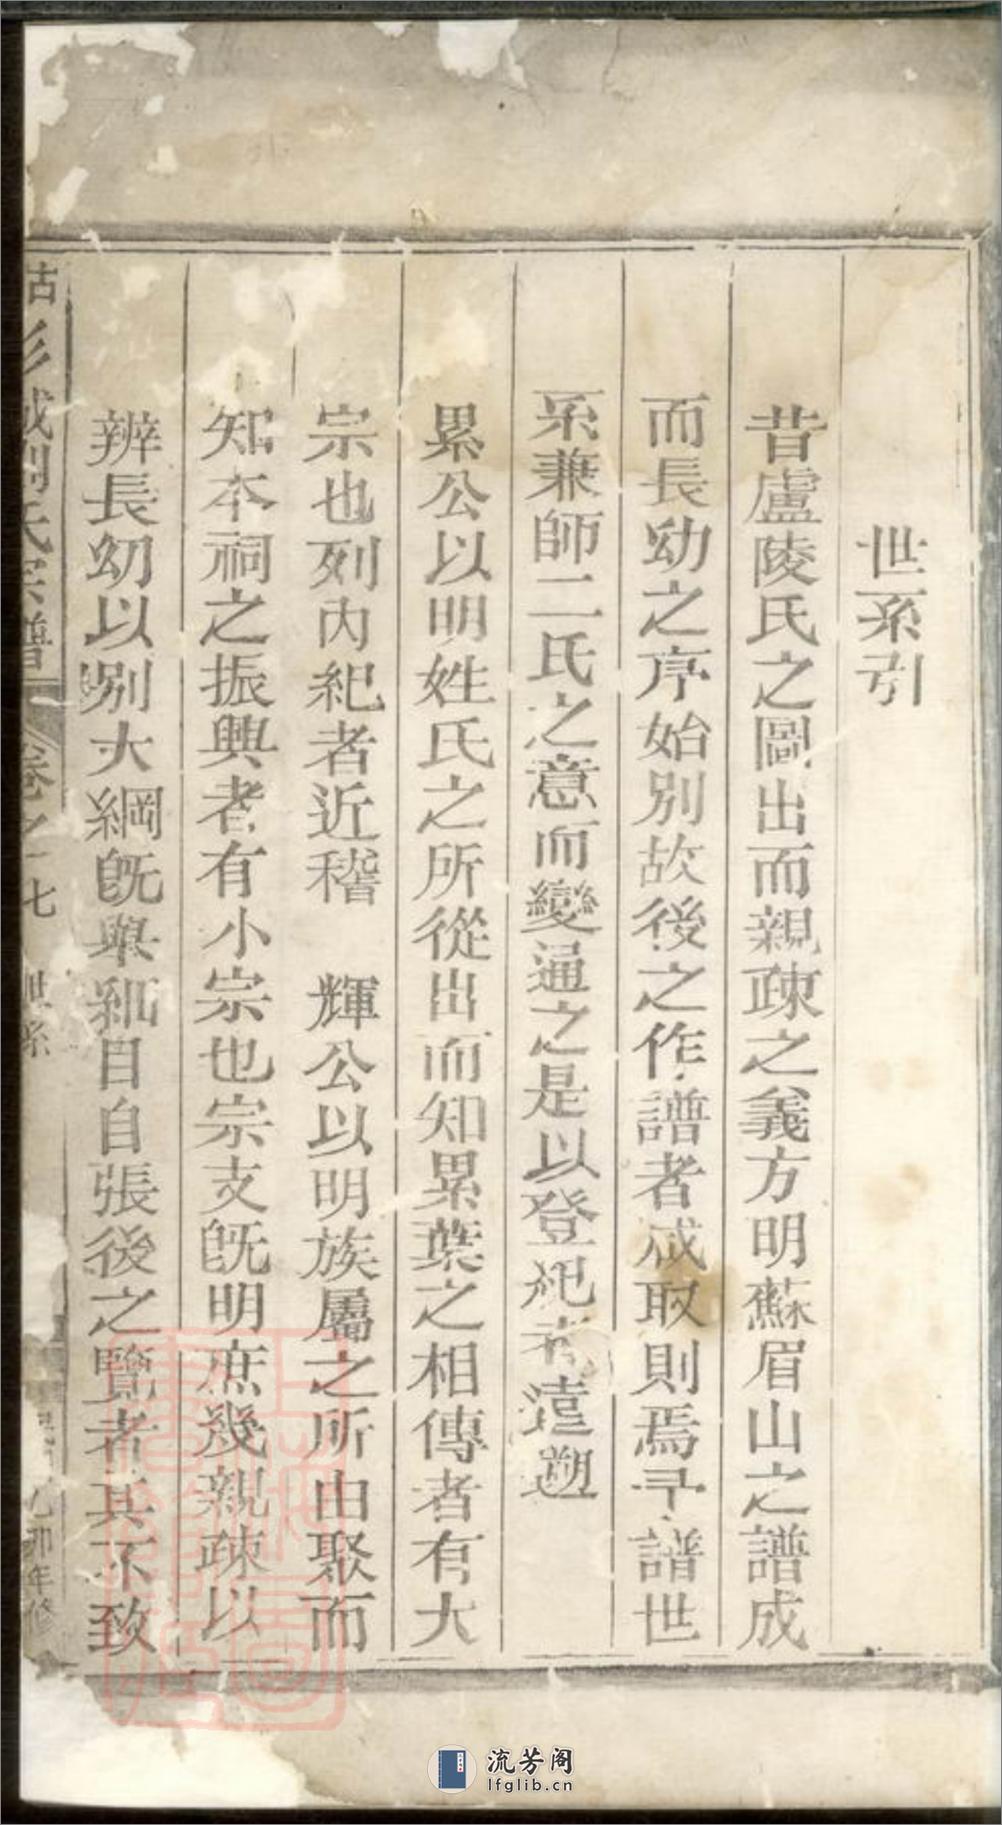 世系引
昔盧陵氏之圖出而親疎之義方明蘇眉山之譜成
而長幼之序始別故後之作譜者咸取則焉予譜世
系兼師二氏之意而變通之是以登祀者遠遡
累公以明姓氏之所從出而知累葉之相傳者有大
宗也列內祀者近稽 輝公以明族屬之所由聚而
知本祠之振興者有小宗也宗支旣明庶幾親疎以
辨長幼以別大綱旣舉細目自張後之覽者其不致
古彭城劉氏宗譜 卷之十七 世系 乙卯年修
流芳阁
lfglib.cn